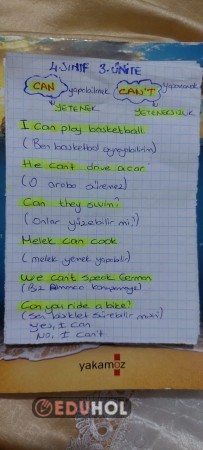 4.SINIF 3.ÜNİTE
CAN yapabilmek CAN'T yapamamak
YETENEK YETENEKSİZLİK
I can play basketball
(Ben basketbol oynayabilirim)
He can't drive a car
(O araba süremez)
Can they swim?
(Onlar yüzebilir mi?)
Melek can cook
(melek yemek yapabilir)
We can't speak German
(Biz Almanca konuşamayız)
Can you ride a bike?
(Sen bisiklet sürebilir misin)
Yes, I can
No, I can't
yakamoz
EDUHOL